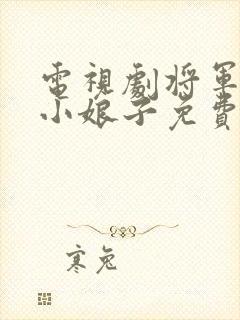 電視劇將軍
小娘子免費
寒兔